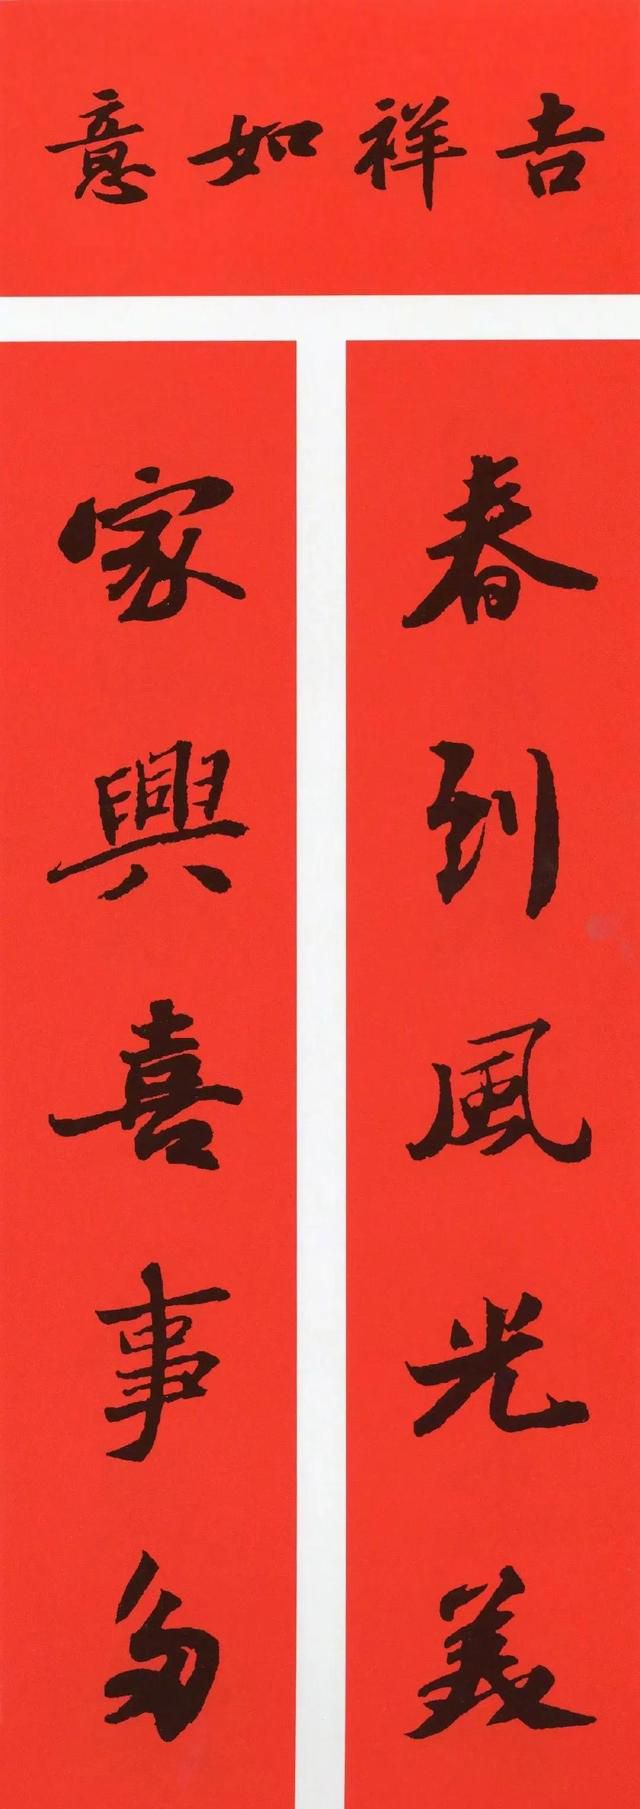 吉祥如意
春到風光美
家興喜事多